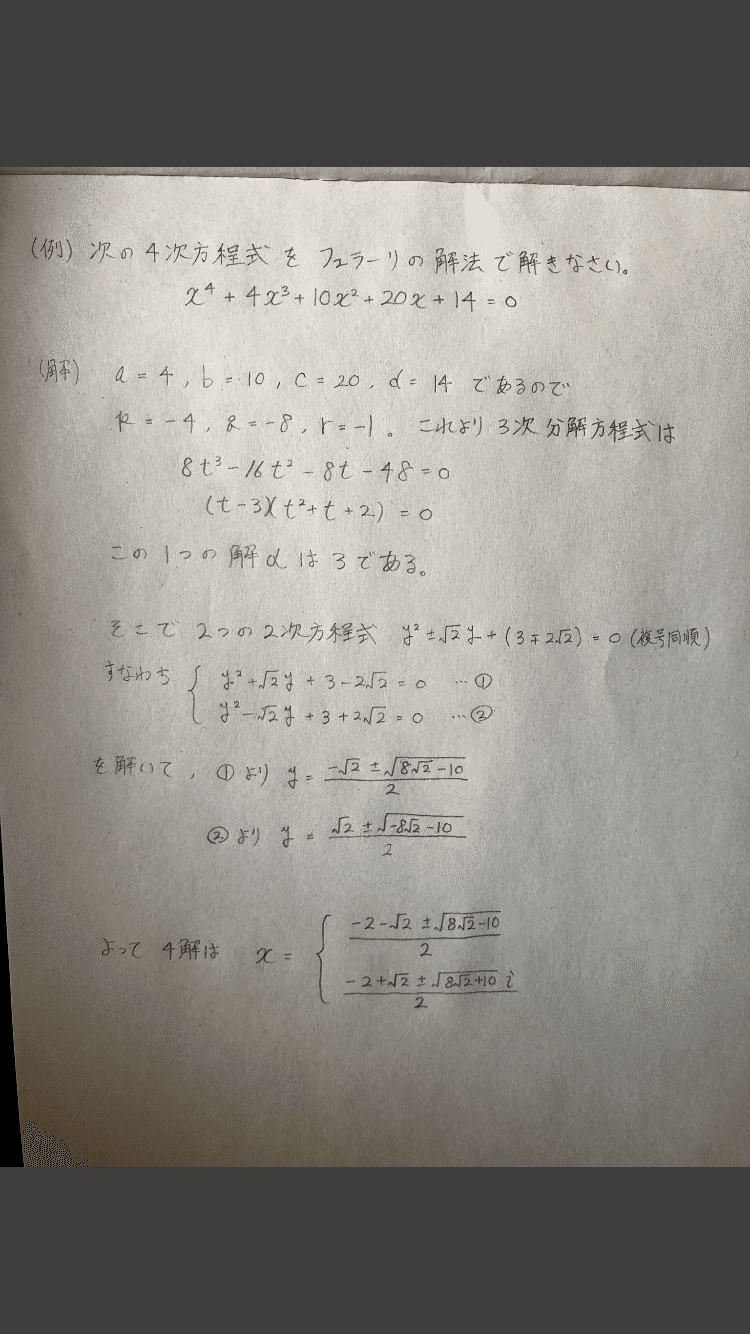 (例) 次の4次方程式をフェラーリの解法で解きなさい。
x⁴ + 4x³ + 10x² + 20x + 14 = 0
(解) a = 4, b = 10, c = 20, d = 14 であるので
p = -4, q = -8, r = -1。これより3次分解方程式は
8t³ - 16t² - 8t - 48 = 0
(t - 3)(t² + t + 2) = 0
この1つの解αは3である。
そこで2つの2次方程式 y² ± √2 y + (3 ∓ 2√2) = 0 (複号同順)
すなわち { y² + √2 y + 3 - 2√2 = 0 …①
y² - √2 y + 3 + 2√2 = 0 …②
を解いて, ①より y = (-√2 ± √(8√2 - 10)) / 2
②より y = (√2 ± √(-8√2 - 10)) / 2
よって 4解は x = { (-2 - √2 ± √(8√2 - 10)) / 2
(-2 + √2 ± √(8√2 + 10) i) / 2